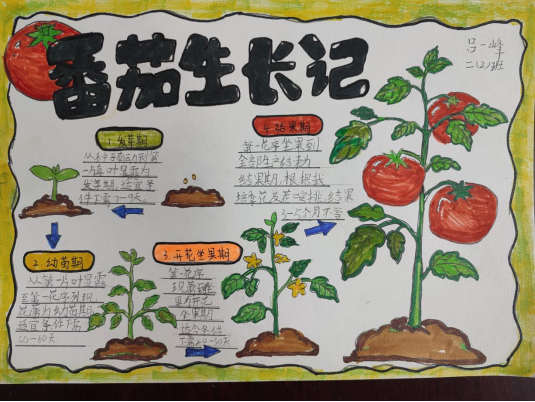 番茄生长记
吕一峰
二(2)班
1.发芽期
从种子萌动到第
一片真叶显露为
发芽期,适宜条
件下需7-9天。
2.幼苗期
从第一片叶显露
至第一花序现
花蕾为幼苗期
适宜条件下需
50-60天
3.开花坐果期
第一花序
现蕾
坐果期
适宜条件
下需20-30天
4.结果期
第一花序坐果到
全部生产结束为
结果期,根据栽
结果
3-5个月不等